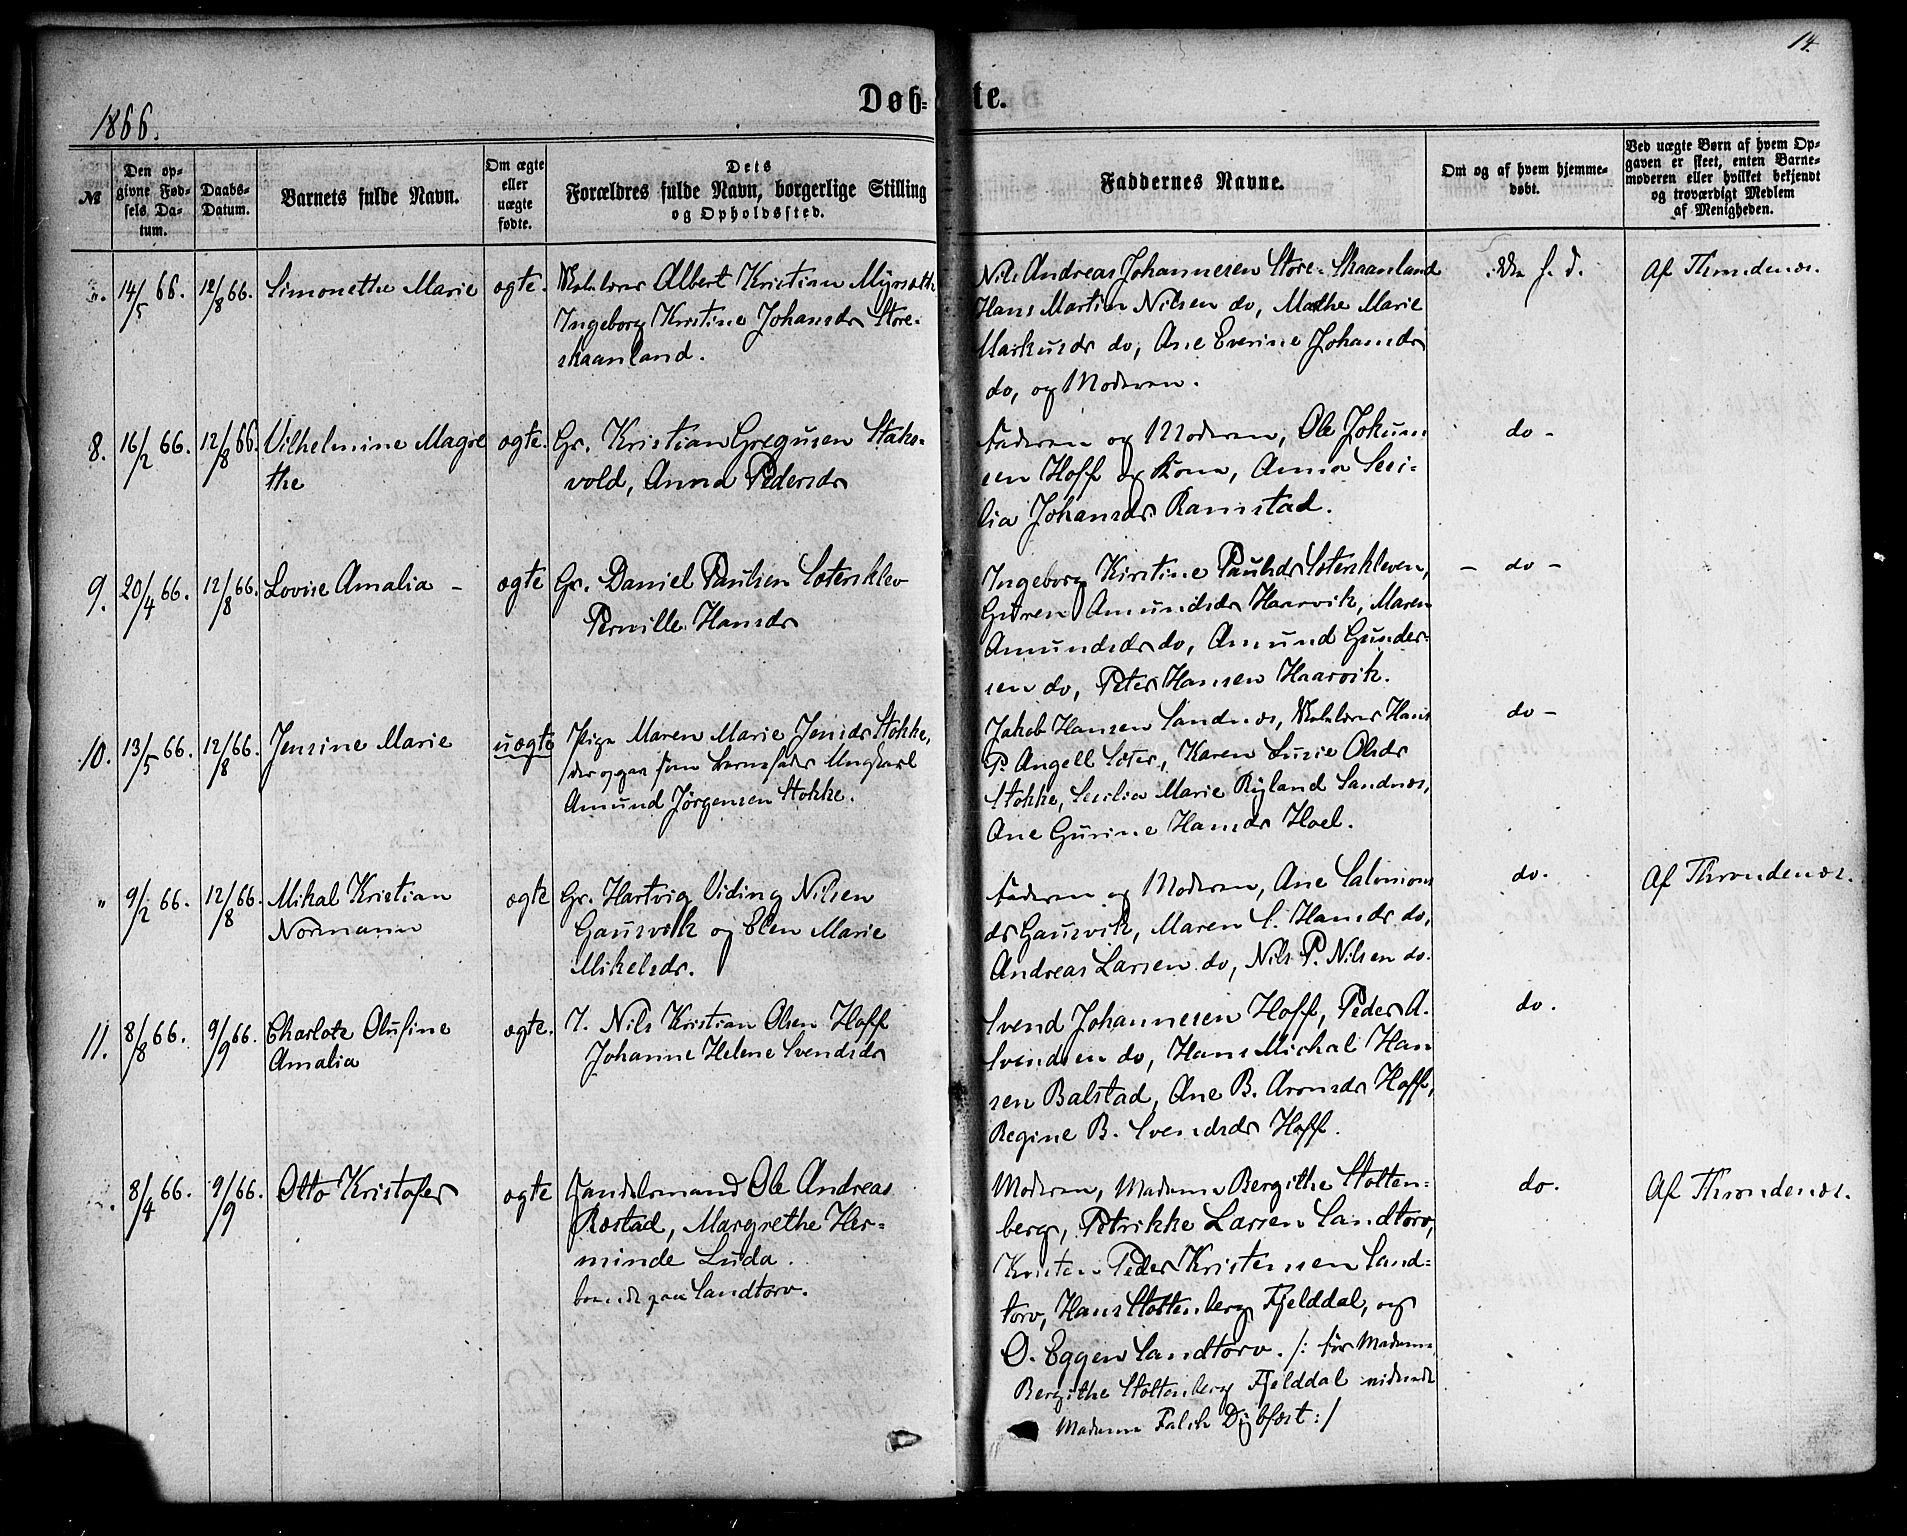 14.
Døb-te.
1866.
№
Den op-
givne Fød-
sels Da-
tum.
Daabs-
Datum.
Barnets fulde Navn.
Om ægte
eller
uægte
fødte.
Dets
Forældres fulde Navn, borgerlige Stilling
og Opholdssted.
Faddernes Navne.
Om og af hvem hjemme-
døbt.
Ved uægte Børn af hvem Op-
gaven er skeet, enten Barne-
moderen eller hvilket bekjendt
og troværdigt Medlem
af Menigheden.
". 14/5 66. 12/8 66. Simonethe Marie ægte. Albert Kristian
Ingeborg Kristine Johansdr Store-
skaanland.
Nils Andreas Johannesen Store-Skaanland
Hans Martin Nilsen do, Marthe Marie
Markusdr do, Ane Everine Johansdr
do, og Moderen.
Af Throndenæs.
8. 16/2 66. 12/8 66. Vilhelmine Magre
the
ægte. Gr. Kristian Gregusen Staks-
vold, Anna Pedersdr
Faderen og Moderen, Ole Johun
sen Hoff og Kone, Anna Seci-
lia Johansdr Ramstad.
do -
9. 20/4 66. 12/8 66. Lovise Amalia - ægte Gr. Daniel Paulsen Sætersklev
Pernille Hansdr
Ingeborg Kirstine Paulsdr Sæterskleven,
Guren Amundsdr Haarvik, Maren
Amundsdr do, Amund Gunder-
sen do, Peter Hansen Haarvik.
- do -
10. 13/5 66. 12/8 66. Jensine Marie uægte Pige Maren Marie Jensdr Stokke,
der opgav som barnefader Ungkarl
Amund Jørgensen Stokke.
Jakob Hansen Sandnæs, Hans
P. Angell Sæter, Karen Lusie Olsdr
Stokke, Secilia Marie Ryland Sandnæs,
Ane Gurine Hansdr Hoel.
do -
" 9/2 66. 12/8 66. Mikal Kristian
Normann
ægte Gr. Hartvig Viding Nilsen
Gausvik og Elen Marie
Mikelsdr.
Faderen og Moderen, Ane Salomons
dr Gausvik, Maren S. Hansdr do,
Andreas Larsen do, Nils P. Nilsen do.
do.
Af Throndenæs.
11. 8/8 66. 9/9 66. Charlote Olufine
Amalia
ægte. I. Nils Kristian Olsen Hoff
Johanne Helene Svendsdr
Svend Johannesen Hoff, Peder A.
Svendsen do, Hans Michal Han
sen Balstad, Ane B. Aronsdr Hoff,
Regine B. Svendsdr Hoff.
do.
". 8/4 66. 9/9 66. Otto Kristofer ægte Handelsmand Ole Andreas
Røstad, Margrethe Her-
minde Luda.
boende paa Sandtorv.
Moderen, Madame Bergithe Stolten-
berg, Petrikke Larsen Sandtorv,
Kristen Peder Kristensen Sand-
torv, Hans Stoltenberg Fjelddal, og
O. Eggen Sandtorv. /: for Madame
Bergithe Stoltenberg Fjelddal
Madame Falch Dybfæst :/
do.
Af Throndenæs.